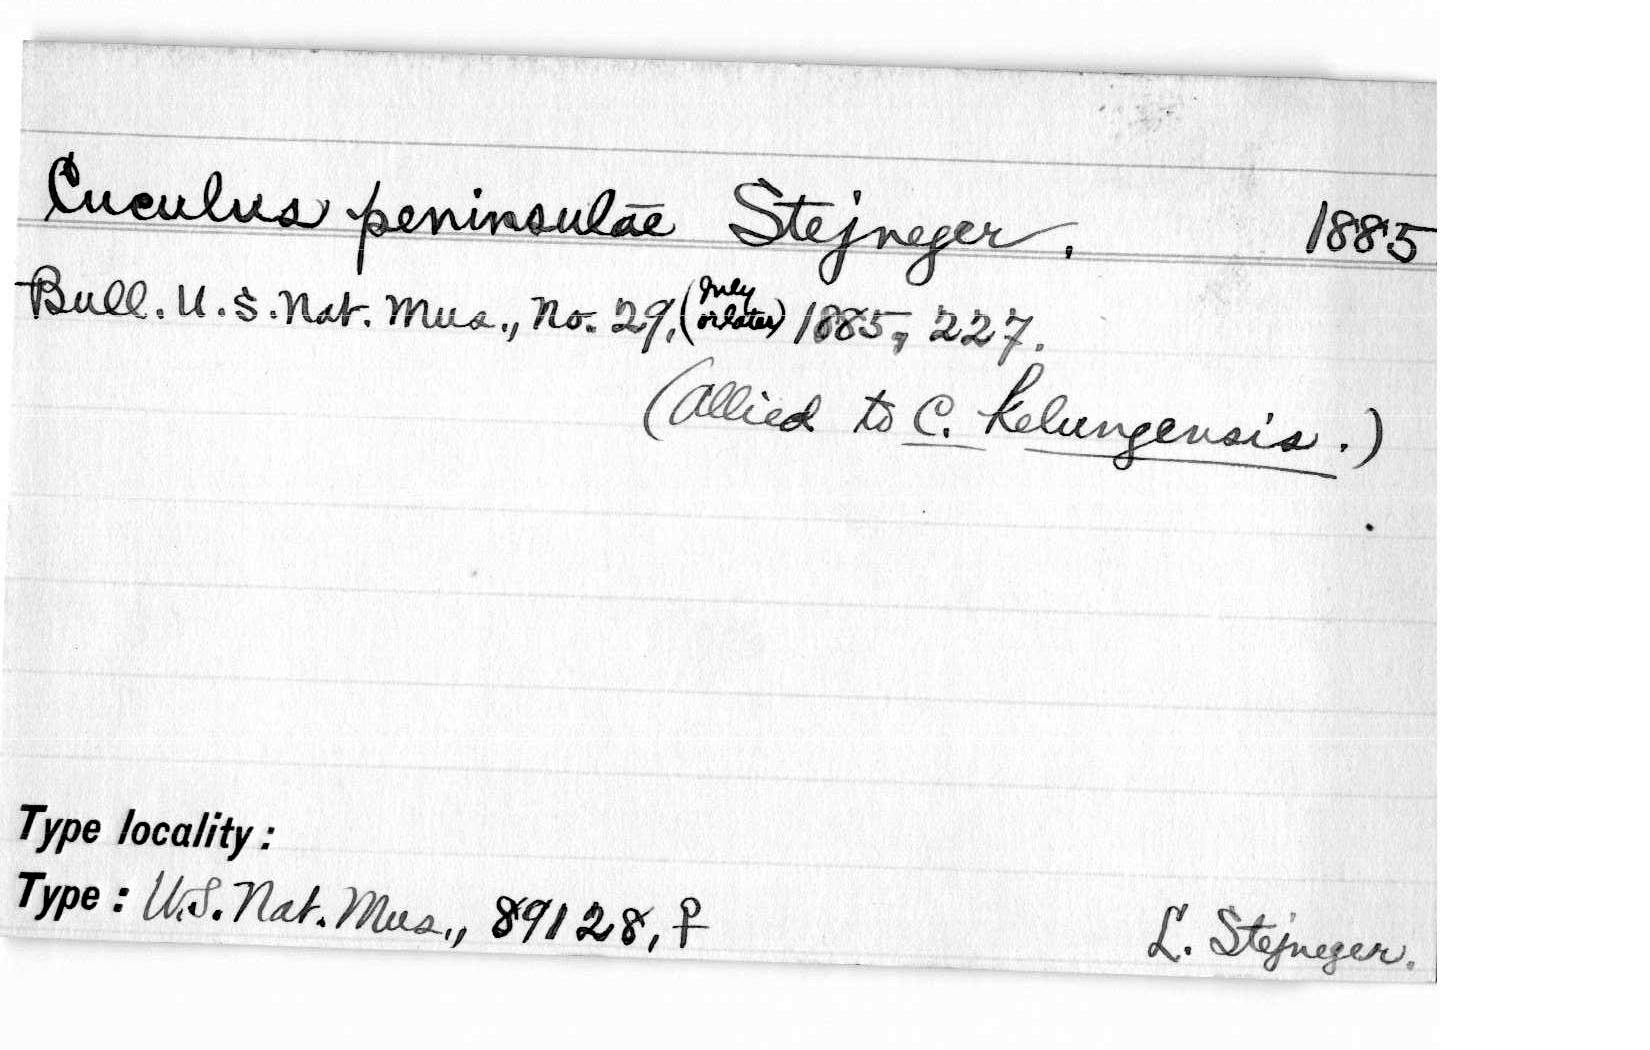 Cuculus peninsulae Stejneger. 1885
Bull. U.S. Nat. Mus., No. 29, (July or later) 1885, 227.
(Allied to C. kelungensis.)
Type locality:
Type: U.S. Nat. Mus., 89128, ♀
L. Stejneger.